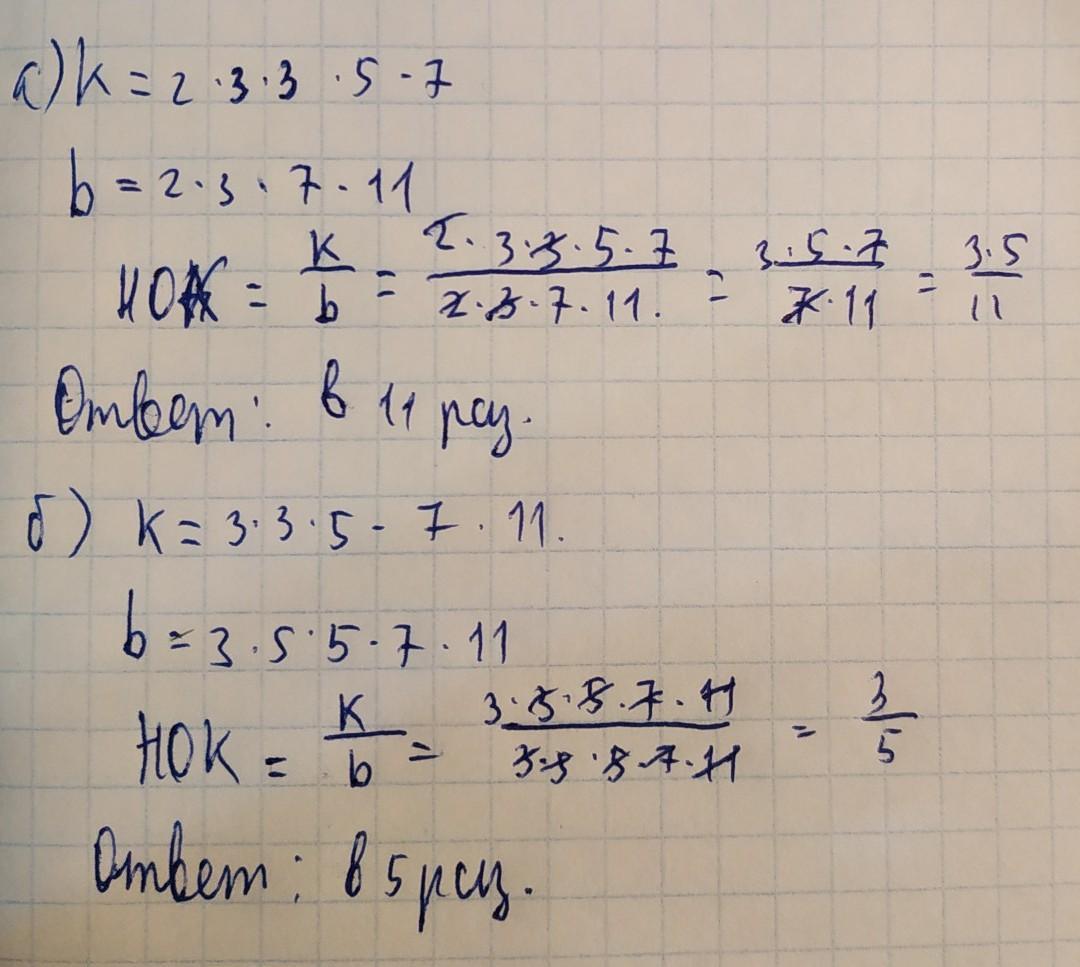 а) k = 2 · 3 · 3 · 5 · 7
b = 2 · 3 · 7 · 11
НОК = k/b = 2 · 3 · 3 · 5 · 7 / 2 · 3 · 7 · 11. = 3 · 5 · 7 / 7 · 11 = 3 · 5 / 11
Ответ: в 11 раз.
б) k = 3 · 3 · 5 · 7 · 11.
b = 3 · 5 · 5 · 7 · 11
НОК = k/b = 3 · 3 · 5 · 7 · 11 / 3 · 5 · 5 · 7 · 11 = 3/5
Ответ: в 5 раз.